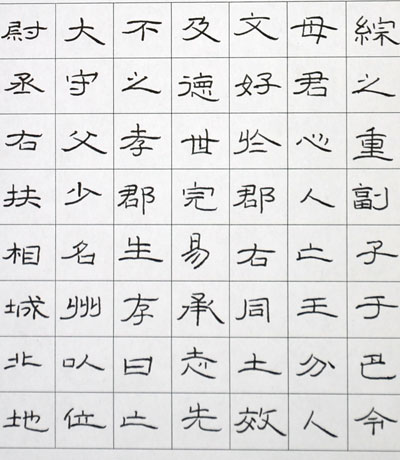 綜之重副子于巴令
母君心人亡王分人
文好於郡右同土效
及德世完易承志先
不之孝郡生存曰亡
大守父少名州以位
尉丞右扶相城北地